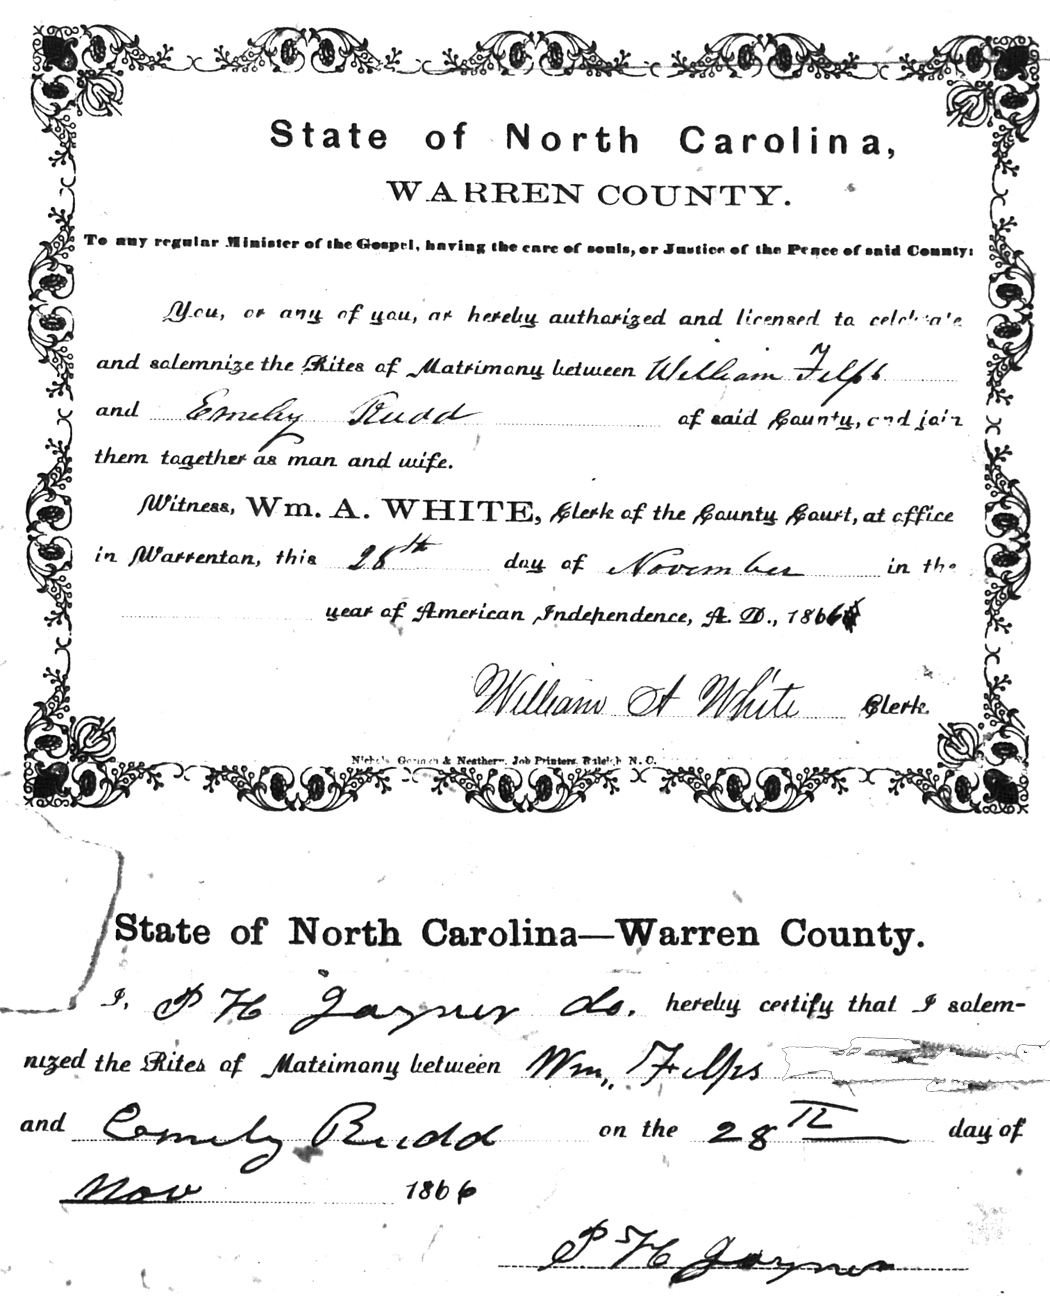 State of North Carolina,
WARREN COUNTY.
To any regular Minister of the Gospel, having the care of souls, or Justice of the Peace of said County:
You, or any of you, are hereby authorized and licensed to celebrate
and solemnize the Rites of Matrimony between William Felps
and Emely Rudd of said County, and join
them together as man and wife.
Witness, Wm. A. WHITE, Clerk of the County Court, at office
in Warrenton, this 28th day of November in the
year of American Independence, A. D., 1866
William A White Clerk.
Nichols, Gorman & Neathery, Job Printers, Raleigh N. C.
State of North Carolina—Warren County.
I, P H Joyner do. hereby certify that I solem-
nized the Rites of Matrimony between Wm, Felps
and Emely Rudd on the 28th day of
Nov 1866
P H Joyner